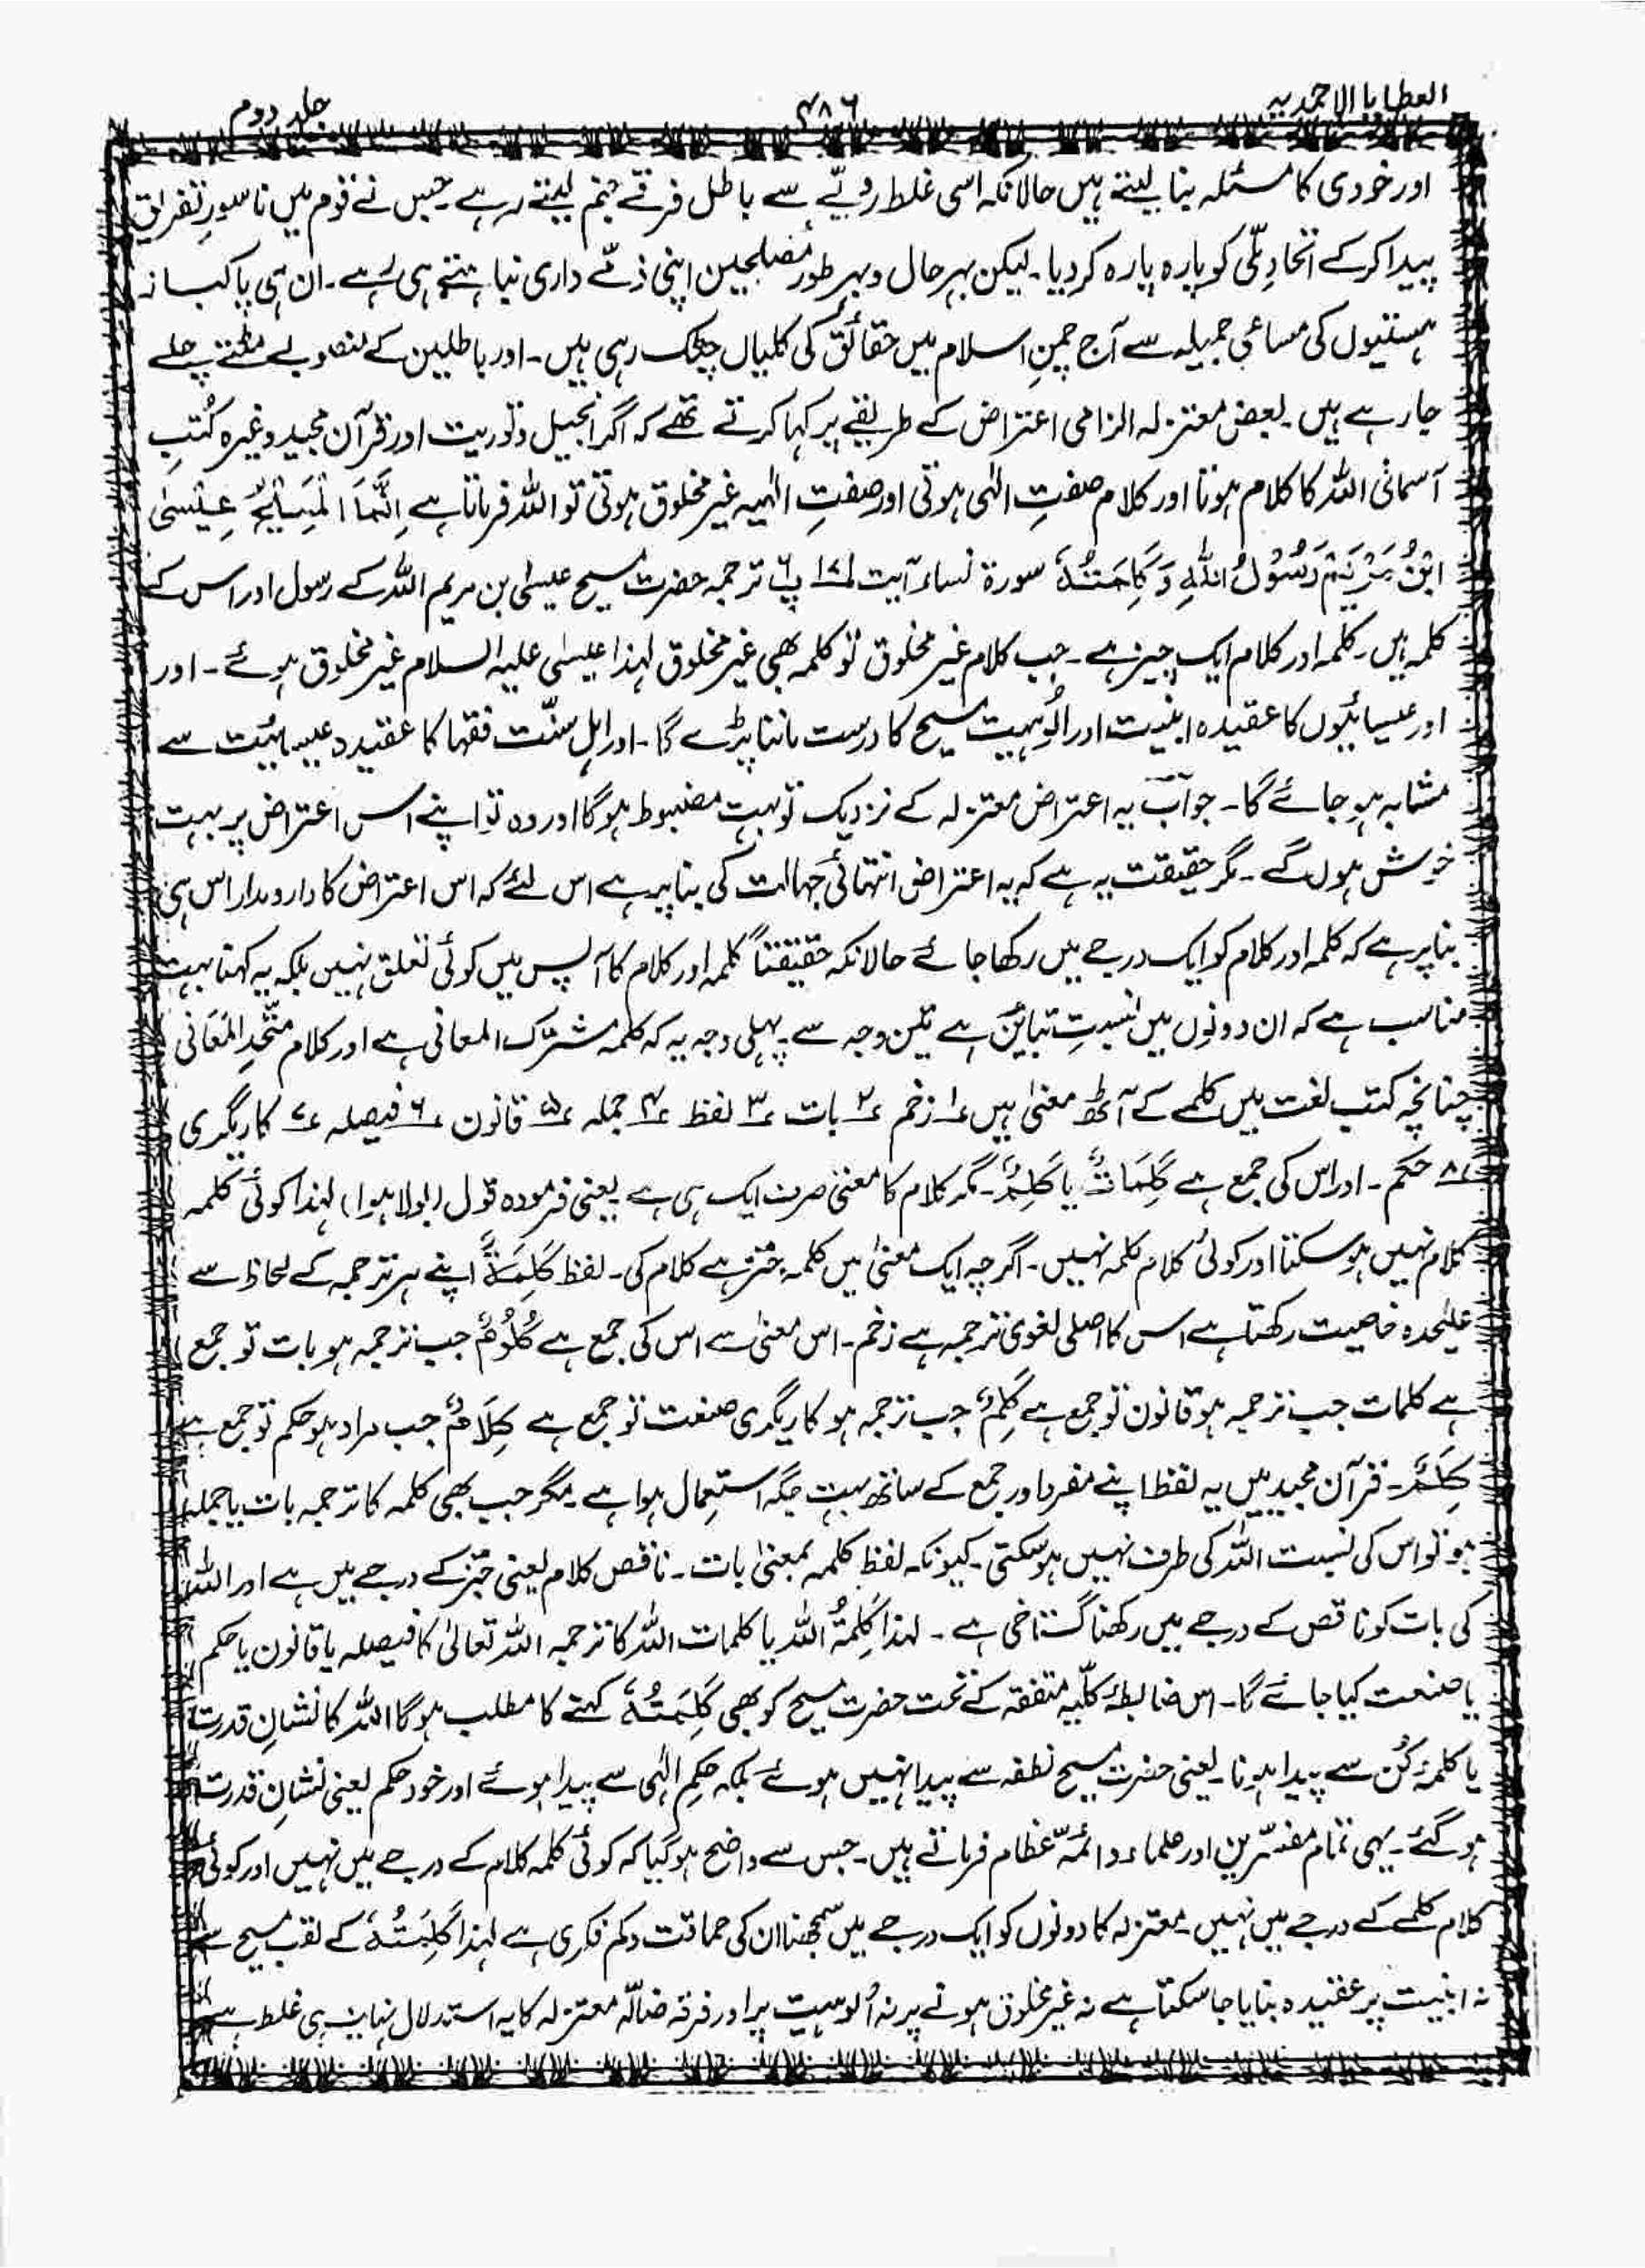 العطایا الاحمدیہ
۴۸۶
جلد دوم
اور خودی کا مسئلہ بنا لیتے ہیں حالانکہ اسی غلط رویّے سے باطل فرقے جنم لیتے رہے ۔ جس نے قوم میں ناسورِ تفریق
پیدا کر کے اتحادِ ملّی کو پارہ پارہ کر دیا ۔ لیکن بہر حال و بہر طور مُصلحین اپنی ذمّے داری نبا ہتے ہی رہے ۔ ان ہی پاکباز
ہستیوں کی مساعی جمیلہ سے آج چمنِ اسلام میں حقائق کی کلیاں چٹک رہی ہیں ۔ اور باطلین کے منصوبے مٹتے چلے
جا رہے ہیں ۔ بعض معتزلہ الزامی اعتراض کے طریقے پر کہا کرتے تھے کہ اگر انجیل و توریت اور قرآن مجید وغیرہ کُتبِ
آسمانی اللہ کا کلام ہوتا اور کلام صفتِ الٰہی ہوتی اور صفتِ الٰہیہ غیر مخلوق ہوتی تو اللہ فرماتا ہے اِنَّمَا الْمَسِیْحُ عِیْسٰی
ابْنُ مَرْیَمَ رَسُوْلُ اللہِ وَ کَلِمَتُہٗ سورۃ نساء آیت ۱۷۱ پ ۶ ترجمہ حضرت مسیح عیسٰی بن مریم اللہ کے رسول اور اس کے
کلمہ ہیں ۔ کلمہ اور کلام ایک چیز ہے ۔ جب کلام غیر مخلوق تو کلمہ بھی غیر مخلوق لہٰذا عیسٰی علیہ السلام غیر مخلوق ہوئے ۔ اور
اور عیسائیوں کا عقیدہ ابنیت اور الُوہیت مسیح کا درست ماننا پڑے گا ۔ اور اہل سنّت فقہا کا عقیدہ عیسائیت سے
مشابہ ہو جائے گا ۔ جواب یہ اعتراض معتزلہ کے نزدیک تو بہت مضبوط ہو گا اور وہ تو اپنے اس اعتراض پر بہت
خوش ہوں گے ۔ مگر حقیقت یہ ہے کہ یہ اعتراض انتہائی جہالت کی بنا پر ہے اس لئے کہ اس اعتراض کا دارومدار اس ہی
بنا پر ہے کہ کلمہ اور کلام کو ایک درجے میں رکھا جائے حالانکہ حقیقتاً کلمہ اور کلام کا آپس میں کوئی تعلق نہیں بلکہ یہ کہنا بہت
مناسب ہے کہ ان دونوں میں نسبتِ تباین ہے تین وجہ سے پہلی وجہ یہ کہ کلمہ مشترک المعانی ہے اور کلام متحدِ المَعَانی
چنانچہ کتب لغت میں کلمے کے آٹھ معنیٰ ہیں ۱؎ زخم ۲؎ بات ۳؎ لفظ ۴؎ جملہ ۵؎ قانون ۶؎ فیصلہ ۷؎ کاریگری
۸؎ حکم ۔ اور اس کی جمع ہے کَلِمَاتٌ یا کَلِمٌ ۔ مگر کلام کا معنیٰ صرف ایک ہی ہے یعنی فرمودہ قول (بولا ہوا) لہٰذا کوئی کلمہ
کلام نہیں ہو سکتا اور کوئی کلام کلمہ نہیں ۔ اگرچہ ایک معنیٰ میں کلمہ جُز ہے کلام کی ۔ لفظ کَلِمَۃٌ اپنے ہر ترجمہ کے لحاظ سے
علیٰحدہ خاصیت رکھتا ہے اس کا اصلی لغوی ترجمہ ہے زخم ۔ اس معنیٰ سے اس کی جمع ہے کُلُوْمٌ جب ترجمہ ہو بات تو جمع
ہے کلمات جب ترجمہ ہو قانون تو جمع ہے کَلِمٌ جب ترجمہ ہو کاریگری صنعت تو جمع ہے کِلَامٌ جب مراد ہو حکم تو جمع ہے
کِلَمٌ ۔ قرآن مجید میں یہ لفظ اپنے مفرد اور جمع کے ساتھ بہت جگہ استعمال ہوا ہے ۔ مگر جب بھی کلمہ کا ترجمہ بات یا جملہ
ہو تو اس کی نسبت اللہ کی طرف نہیں ہو سکتی ۔ کیونکہ لفظ کلمہ بمعنیٰ بات ۔ ناقص کلام یعنی جُز کے درجے میں ہے اور اللہ
کی بات کو ناقص کے درجے میں رکھنا گستاخی ہے ۔ لہٰذا کَلِمۃُ اللہ یا کلمات اللہ کا ترجمہ اللہ تعالیٰ کا فیصلہ یا قانون یا حکم
یا صنعت کیا جائے گا ۔ اس ضابطۂ کلّیہ متفقہ کے تحت حضرت مسیح کو بھی کَلِمَتُہٗ کہنے کا مطلب ہو گا اللہ کا نشانِ قدرت
یا کلمۂ کُن سے پیدا ہونا ۔ یعنی حضرت مسیح نطفہ سے پیدا نہیں ہوئے بلکہ حکمِ الٰہی سے پیدا ہوئے اور خود حکم یعنی نشانِ قدرت
ہو گئے ۔ یہی تمام مفسّرین اور علماء و ائمّہ عظام فرماتے ہیں ۔ جس سے واضح ہو گیا کہ کوئی کلمہ کلام کے درجے میں نہیں اور کوئی
کلام کلمے کے درجے میں نہیں ۔ معتزلہ کا دونوں کو ایک درجے میں سمجھنا ان کی حماقت و کم فکری ہے لہٰذا کَلِمَتُہٗ کے لقب مسیح سے
نہ ابنیت پر عقیدہ بنایا جا سکتا ہے نہ غیر مخلوق ہونے پر نہ اُلوہیت پر اور فرقہ ضالّہ معتزلہ کا یہ استدلال نہایت ہی غلط ہے